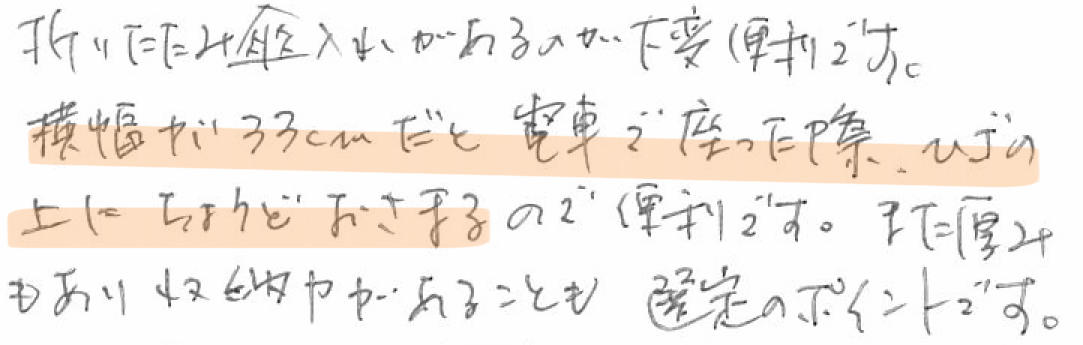 折りたたみ傘入れがあるのが大変便利です。
横幅が33cmだと電車で座った際、ひざの
上にちょうどおさまるので便利です。また厚み
もあり収納力があることも選定のポイントです。